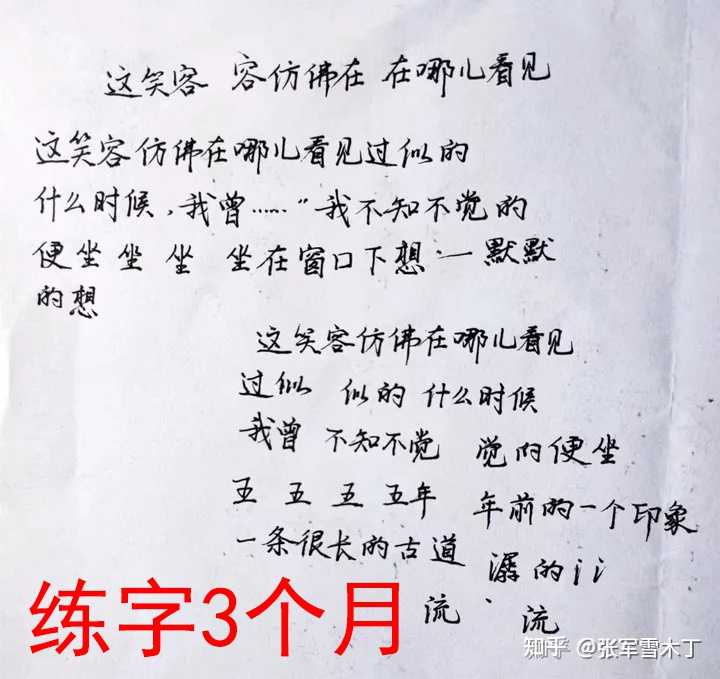 这笑容 容仿佛在 在哪儿看见
这笑容仿佛在哪儿看见过似的
什么时候,我曾……"我不知不觉的
便坐 坐 坐 坐在窗口下想·一默默
的想
这笑容仿佛在哪儿看见
过似 似的 什么时候
我曾 不知不觉 觉的便坐
五 五 五 五年 年前的一个印象
一条很长的古道 潺的氵氵
流· 流
练字3个月
知乎 @张军雪木丁